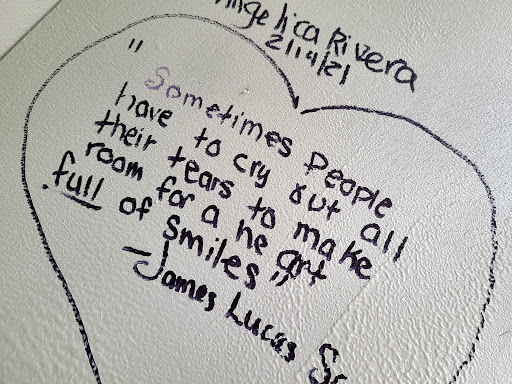 Angelica Rivera
2/14/21
" Sometimes People
have to cry out all
their tears to make
room for a heart
full of
smiles"
- James Lucas